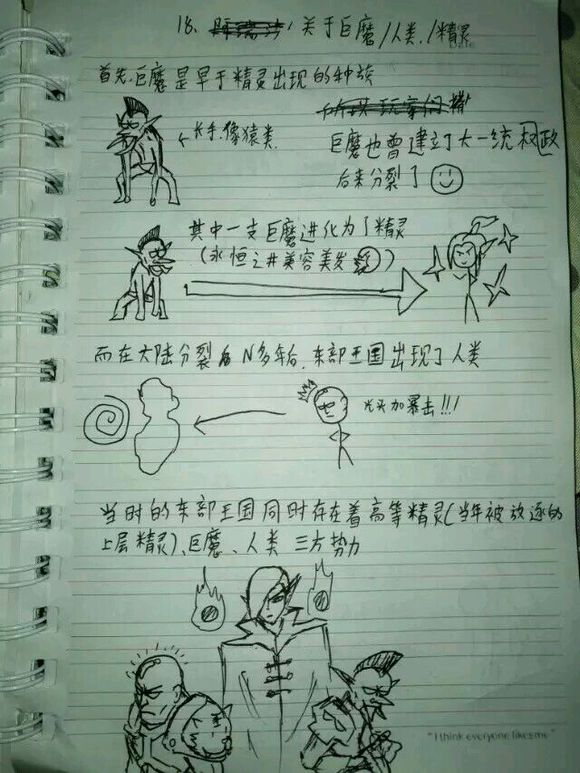 18、关于巨魔/人类/精灵
DATE
首先,巨魔是早于精灵出现的种族
←长手.像猿类.
巨魔也曾建立大一统权政
后来分裂了
其中一支巨魔进化为了精灵
(永恒之井美容美发)
而在大陆分裂后N多年后.东部王国出现了人类
光头加暴击!!!
当时的东部王国同时存在着高等精灵(当年被放逐的
上层精灵)、巨魔、人类 三方势力
"I think everyone likes me"